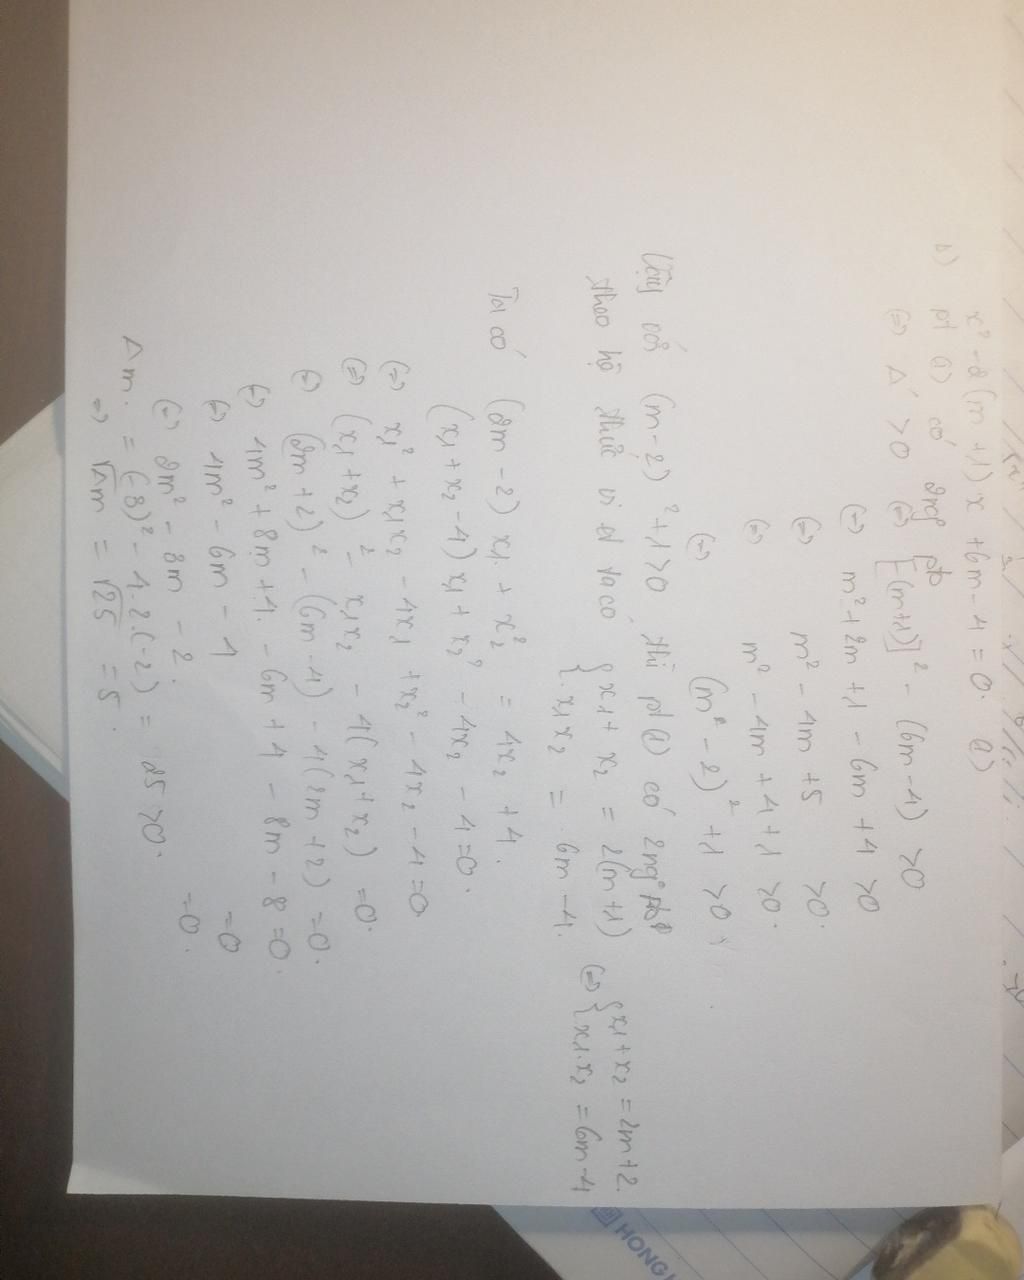 x² - 2(m+1)x + 6m - 4 = 0. (1)
b) pt (1) có 2ng⁰ pb
(=) Δ' > 0 (=) [-(m+1)]² - (6m-4) > 0
(=) m² + 2m + 1 - 6m + 4 > 0
(=) m² - 4m + 5 > 0.
(=) m² - 4m + 4 + 1 > 0.
(=) (m² - 2)² + 1 > 0
Vậy với (m-2)² + 1 > 0 thì pt (1) có 2ng⁰ pb
theo hệ thức vi ét ta có { x₁ + x₂ = 2(m+1) (=) { x₁ + x₂ = 2m+2.
{ x₁x₂ = 6m-4. { x₁.x₂ = 6m-4
Ta có (2m-2)x₁ + x₂² = 4x₂ + 4.
(x₁ + x₂ - 4)x₁ + x₂² - 4x₂ - 4 = 0.
(=) x₁² + x₁x₂ - 4x₁ + x₂² - 4x₂ - 4 = 0
(=) (x₁+x₂)² - x₁x₂ - 4(x₁+x₂) = 0.
(=) (2m+2)² - (6m-4) - 4(2m+2) = 0.
(=) 4m² + 8m + 4 - 6m + 4 - 8m - 8 = 0.
(=) 4m² - 6m - 4 = 0
(=) 2m² - 3m - 2 = 0.
Δm. = (-3)² - 4.2.(-2) = 25 > 0.
=) √Δm = √25 = 5.
HONG